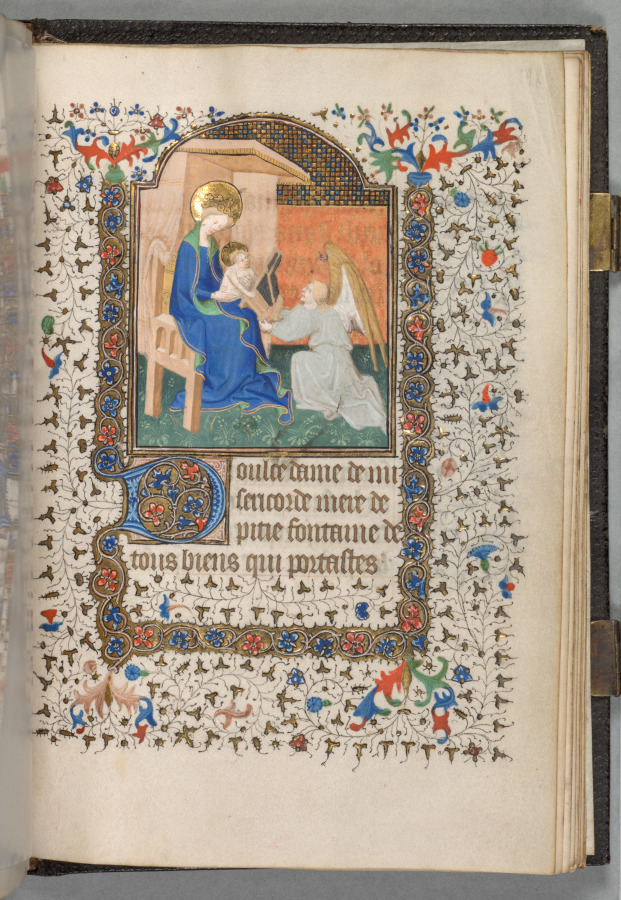 Doulce dame de mi
sericorde mere de
pitie fontaine de
tous biens qui portastes